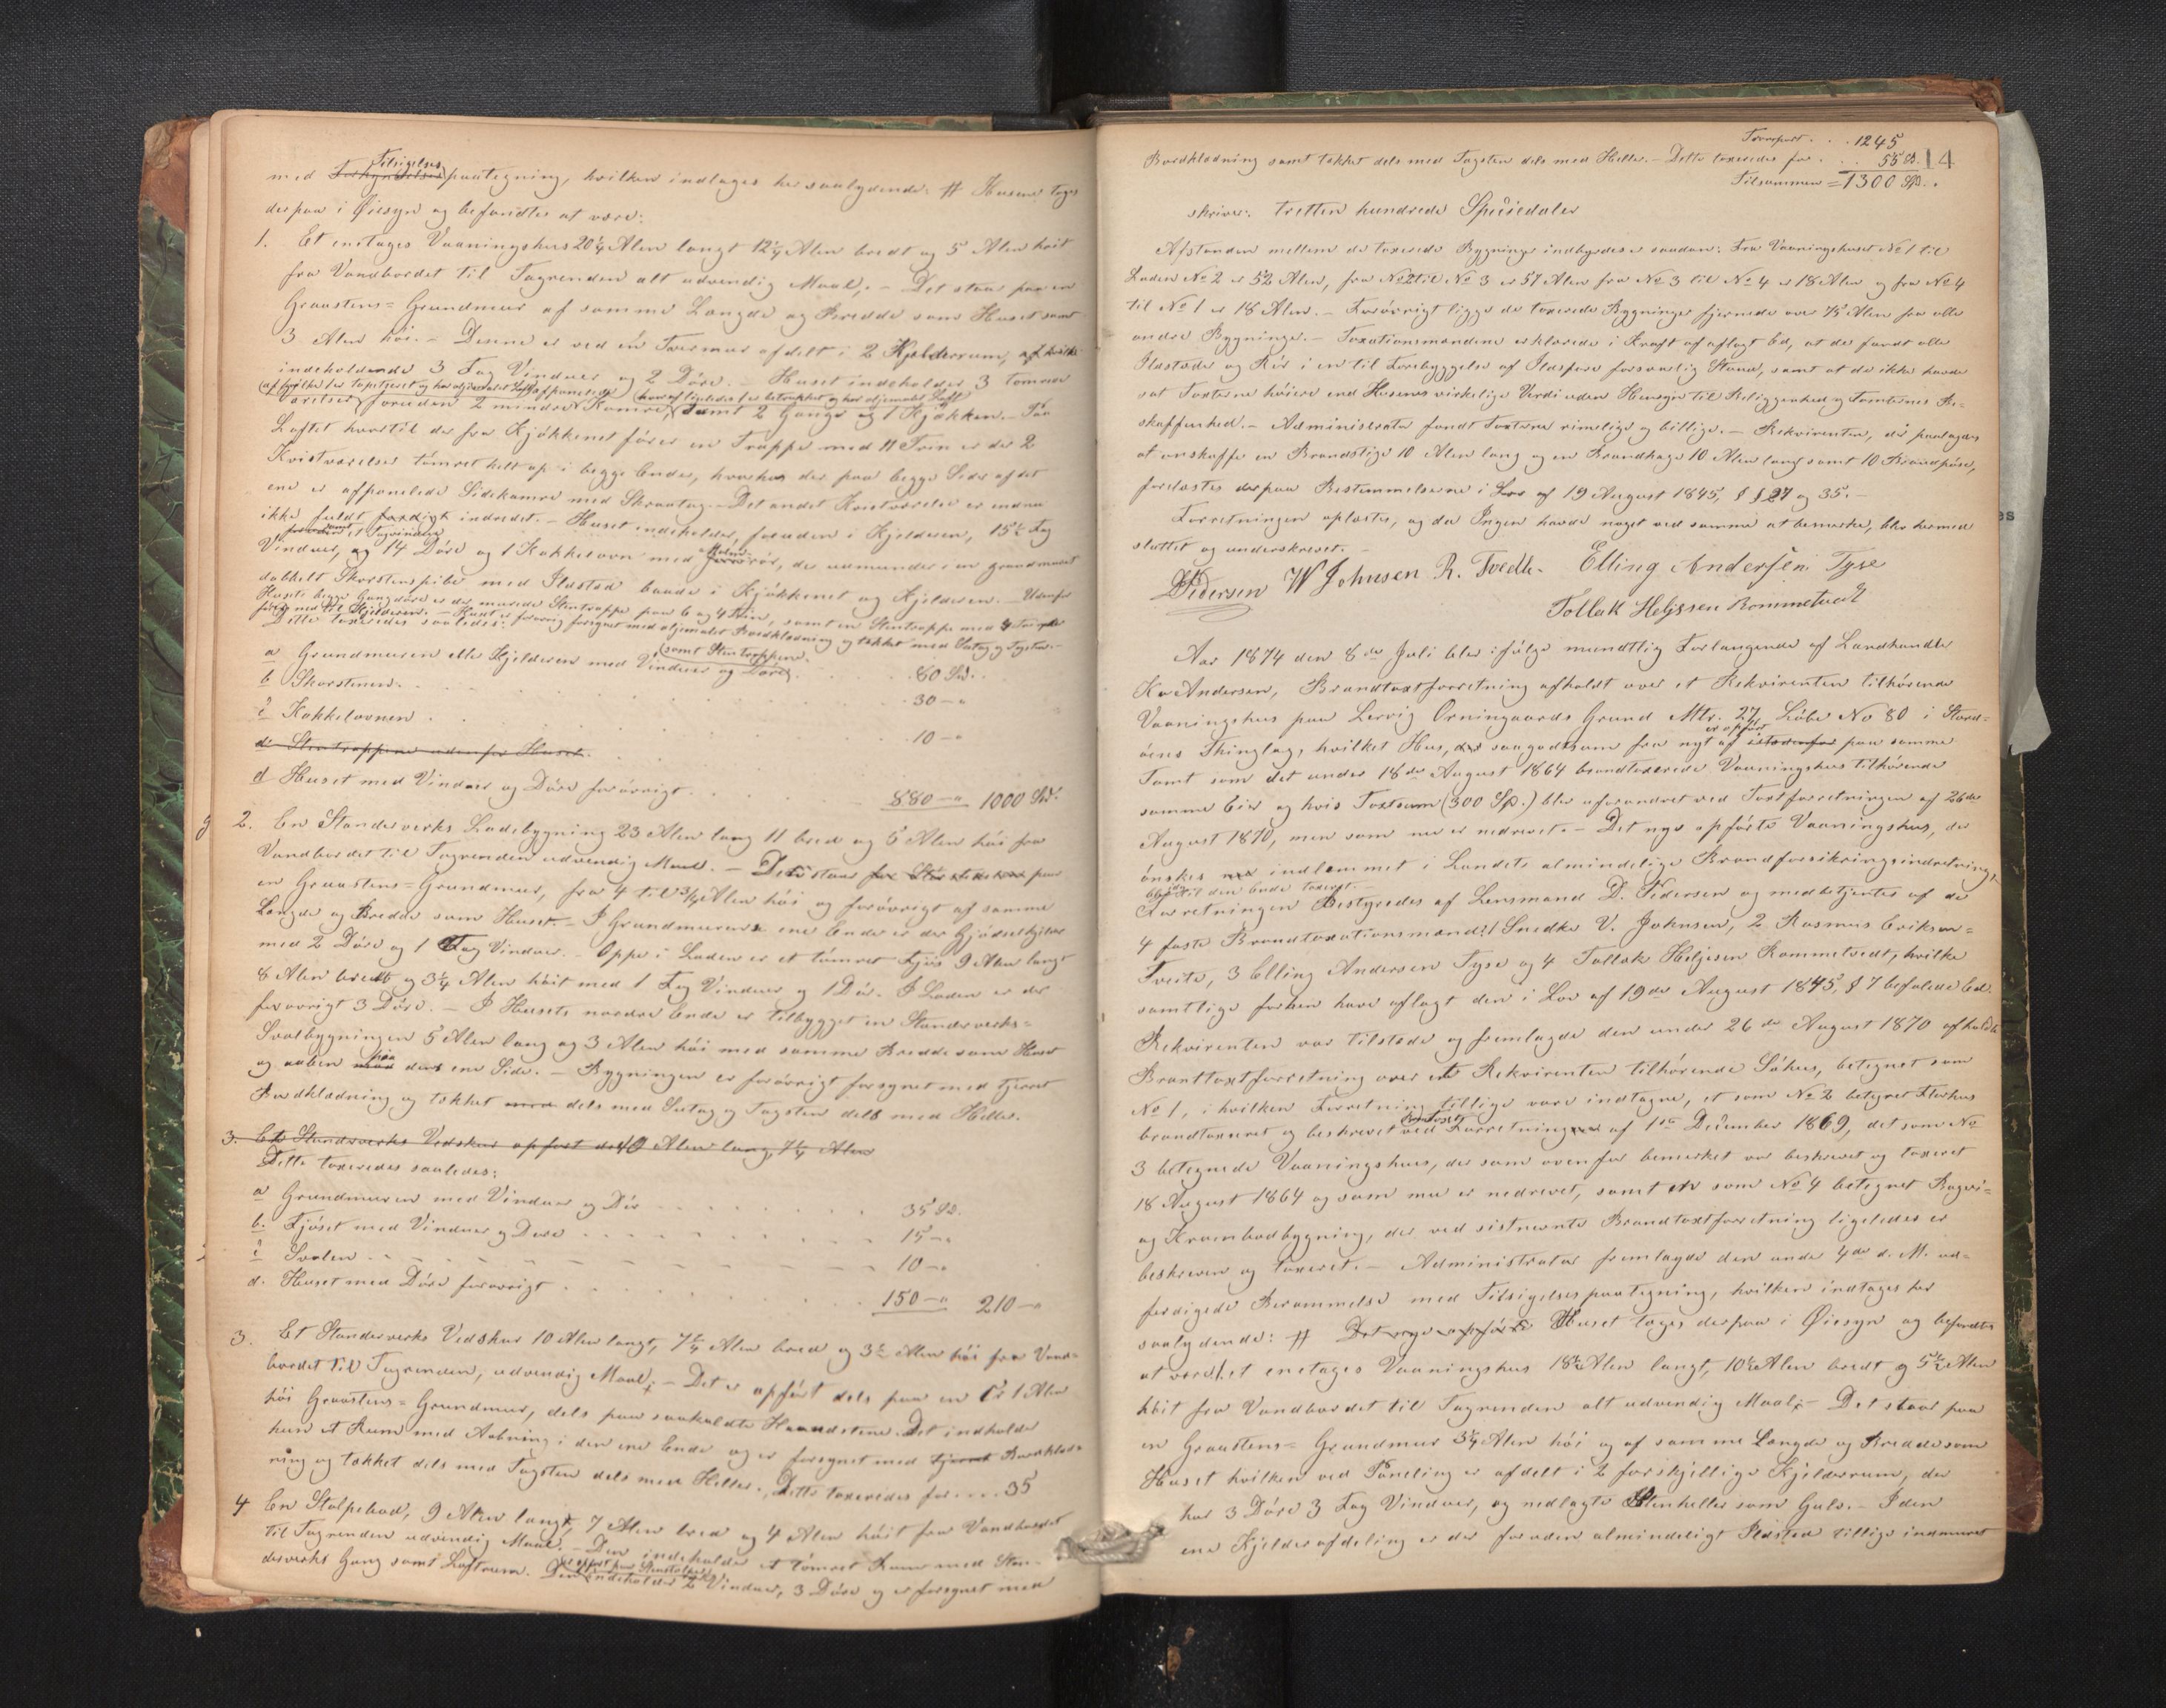 Tilsigelses
med Forkyndelses paategning, hvilken indtages her saalydende: # Husene toges
derpaa i Øiesyn og befandtes at være:
1. Et enetages Vaaningshus 20¼ Alen langt 12¼ Alen bredt og 5 Alen høit
fra Vandbordet til Tagrenden alt udvendig Maal. – Det staar paa en
Graastens=Grundmur af samme Længde og Bredde som Huset samt
3 Alen høi. – Denne er ved en Tvermur afdelt i 2 Kjelderrum, af hvilke
indeholdende 3 Fag Vinduer og 2 Døre. – Huset indeholder 3 tømrede
(af hvilke 1 er tapetseret og har oljemalet Loft) afpanelede (hvoraf ligeledes 1 er betrukket og har oljemalet Loft)
værelser foruden 2 mindre Kamre, samt 2 Gange og 1 Kjøkken. – Paa
Loftet hvortil der fra Kjøkkenet fører en Trappe med 11 Trin er der 2
Kvistværelser tømret helt op i begge Ender, hvorhos der paa begge Sider af det
ene er afpanelede Sidekamre med Skraatag. – Det andet Kvistværelse er endnu
ikke fuldt færdigt indredet. – Huset indeholder, foruden i Kjelderen, 15½ Fag
foruden samt 1 Tagvindue
Vinduer, og 14 Døre og 1 Kakkelovn med Jernrør, der udmunder i en grundmuret
dobbelt Skorstenspibe med Ildsted baade i Kjøkkenet og Kjelderen. – Udenfor
Husets begge Gangdøre er der murede Stentrapper paa 6 og 4 Trin, samt en Stentrappe med 4 Trin der
fører ned til Kjelderen. – Huset er forøvrig forsynet med oljemalet Bordklædning og tækket med Sutag og Tagsten. –
Dette taxeredes saaledes:
(samt Stentrapperne.
a Grundmuren eller Kjelderen med Vinduer og Døre) . . . . 80 Spd.
b Skorstenen . . . . . . . 30 – "
c Kakkelovnen . . . . . . . 10 – "
d. Stentrapperne udenfor Huset.
d Huset med Vinduer og Døre forøvrigt . . . . . 880 – " 1000 Spd.
2. En Standerverks Ladebygning 23 Alen lang 11 bred og 5 Alen høi fra
Vandbordet til Tagrenden udvendig Maal. – Dette staar paa
en Graastens=Grundmur, fra 4 til ¾ Alen høi og forøvrigt af samme
Længde og Bredde som Huset. – I Grundmurens ene Ende er der Gjødselkjelder
med 2 Døre og 1 Fag Vinduer. – Oppe i Laden er et tømret Fjøs 9 Alen langt
8 Alen bredt og 3¼ Alen høit med 1 Fag Vinduer og 1 Dør. I Laden er der
forøvrigt 3 Døre. – I Husets nordre Ende er tilbygget en Standerverks=
Svalbygningen 5 Alen lang og 3 Alen høi med samme Bredde som Huset
paa
og aaben den ene Side. – Bygningen er forøvrigt forsynet med tjærret
Bordklædning og tækket med dels med Sutag og Tagsten dels med Heller.
3. Et Standerverks Vedskur opført dels 10 Alen lang, 7¼ Alen
Dette taxeredes saaledes:
a Grundmuren med Vinduer og Dør . . . . . . . 35 Spd.
b. Fjøset med Vinduer og Døre . . . . . . . 15 – "
c Svalen . . . . . . . 10 – "
d. Huset med Døre forøvrigt . . . . . . . 150 – " 210 – "
3. Et Standerverks Vedskur 10 Alen langt, 7¼ Alen bred og 3½ Alen høi fra Vand=
bordet til Tagrenden, udvendig Maal; – Det er opført dels paa en 1 Alen
høi Graastens=Grundmur, dels paa saakaldte Haandstene. Det indeholder
kun et Rum med Aabning i den ene Ende og er forsynet med tjæret Bordklæd=
ning og tækket dels med Tagsten dels med Heller. Dette taxeredes for . . . . 35
4 En Stolpebod, 9 Alen langt, 7 Alen bred og 4 Alen høit fra Vandbordet
til Tagrenden udvendig Maal. – Den indeholder et tømret Rum med Stan=
er opført paa Stenstolper
derverks Gang samt Loftrum. Den indeholder 2 Vinduer, 3 Døre og er forsynet med
Transport . . . 1245
Bordklædning samt tækket dels med Tagsten dels med Heller. – Dette taxeredes for . . . 55 Spd. 14
Tilsammen = 1300 Spd.
skriver: tretten hundrede Speciedaler
Afstanden mellem de taxerede Bygninger indbyrdes er saadan: Fra Vaaningshuset No 1 til
Laden No 2 er 52 Alen, fra No 2 til No 3 er 57 Alen fra No 3 til No 4 er 18 Alen og fra No 4
til No 1 er 18 Alen. – Forøvrigt ligger de taxerede Bygninger fjernede over 75 Alen fra alle
andre Bygninger. – Taxationsmændene erklærede i Kraft af aflagt Ed, at de fandt alle
Ildsteder og Rør i en til Forebyggelse af Ildsfare forsvarlig Stand, samt at de ikke havde
sat Taxterne høiere end Husenes virkelige Verdi uden Hensyn til Beliggenhed og Tomternes Be=
skaffenhed. – Administrator fandt Taxterne rimelige og billige. – Rekvirenten, der paalagdes
at anskaffe en Brandstige 10 Alen lang og en Brandhage 10 Alen lang samt 10 Brandpøse,
forelæstes derpaa Bestemmelserne i Lov af 19 August 1845, § § 27 og 35. –
Forretningen oplæstes, og da Ingen havde noget ved samme at bemærke, blev hermed
sluttet og underskrevet. –
D Pedersen W Johnsen R. Tvedte. Elling Andersen Tyse
Tollak Heljesen Rommetvedt
Aar 1874 den 8de Juli blev ifølge mundtlig Forlangende af Landhandler
Kr Andersen, Brandtaxtforretning afholdt over et Rekvirenten tilhørende
Vaaningshus paa Lervig Orningaards Grund Mtr. 27, Løbe No 80 i Stord=
er opført
øens Thinglag, hvilket Hus, der saagodtsom fra nyt af paa samme
Tomt som det under 18de August 1864 brandtaxerede Vaaningshus tilhørende
samme Eier og hvis Taxtsum (300 Sp.) blev uforandret ved Taxtforretningen af 26de
August 1870, men som nu er nedrevet. – Det nye opførte Vaaningshus, der
ønskes indlemmet i Landets almindelige Brandforsikringsindretning,
til den Ende taxeret. –
Forretningen bestyredes af Lensmand D. Pedersen og medbetjentes af de
4 faste Brandtaxationsmænd: 1 Snedker V. Johnsen, 2 Rasmus Eriksen=
Tveite, 3 Elling Andersen Tyse og 4 Tollak Heljesen Rommetvedt, hvilke
samtlige forhen have aflagt den i Lov af 19de August 1845, § 7 befalede Ed.
Rekvirenten var tilstede og fremlagde den under 26de August 1870 afholdte
Branttaxtforretning over et Rekvirenten tilhørende Søhus, betegnet som
No 1, i hvilken Forretning tillige vare indtagne, et som No 2 betegnet Flørhus
brandtaxeret og beskrevet ved Forretningen af 1ste December 1869, det som No
3 betegnede Vaaningshus, der som ovenfor bemerket var beskrevet og taxeret
18 August 1864 og som nu er nedrevet, samt et som No 4 betegnet Bageri=
og Krambodbygning, der ved sistnævnte Brandtaxtforretning ligeledes er
beskreven og taxeret. – Administrator fremlagde den under 4de d. M. ud=
færdigede Berammelse med Tilsigelsespaategning, hvilken indtages her
saalydende: # Det nye opførte Huset toges derpaa i Øiesyn og befandtes
at være: et enetages Vaaningshus 18½ Alen langt, 10½ Alen bredt og 5½ Alen
høit fra Vandbordet til Tagrenden alt udvendig Maal; – Det staar paa
en Graastens=Grundmur 3¼ Alen høi og af samme Længde og Bredde som
Huset hvilken ved Paneling er afdelt i 2 forskjellige Kjelderrum, der
har 3 Døre 3 Fag Vinduer, og nedlagte Stenheller som Gulv. – I den
ene Kjelderafdeling er der foruden almindeligt Ildsted tillige indmuret